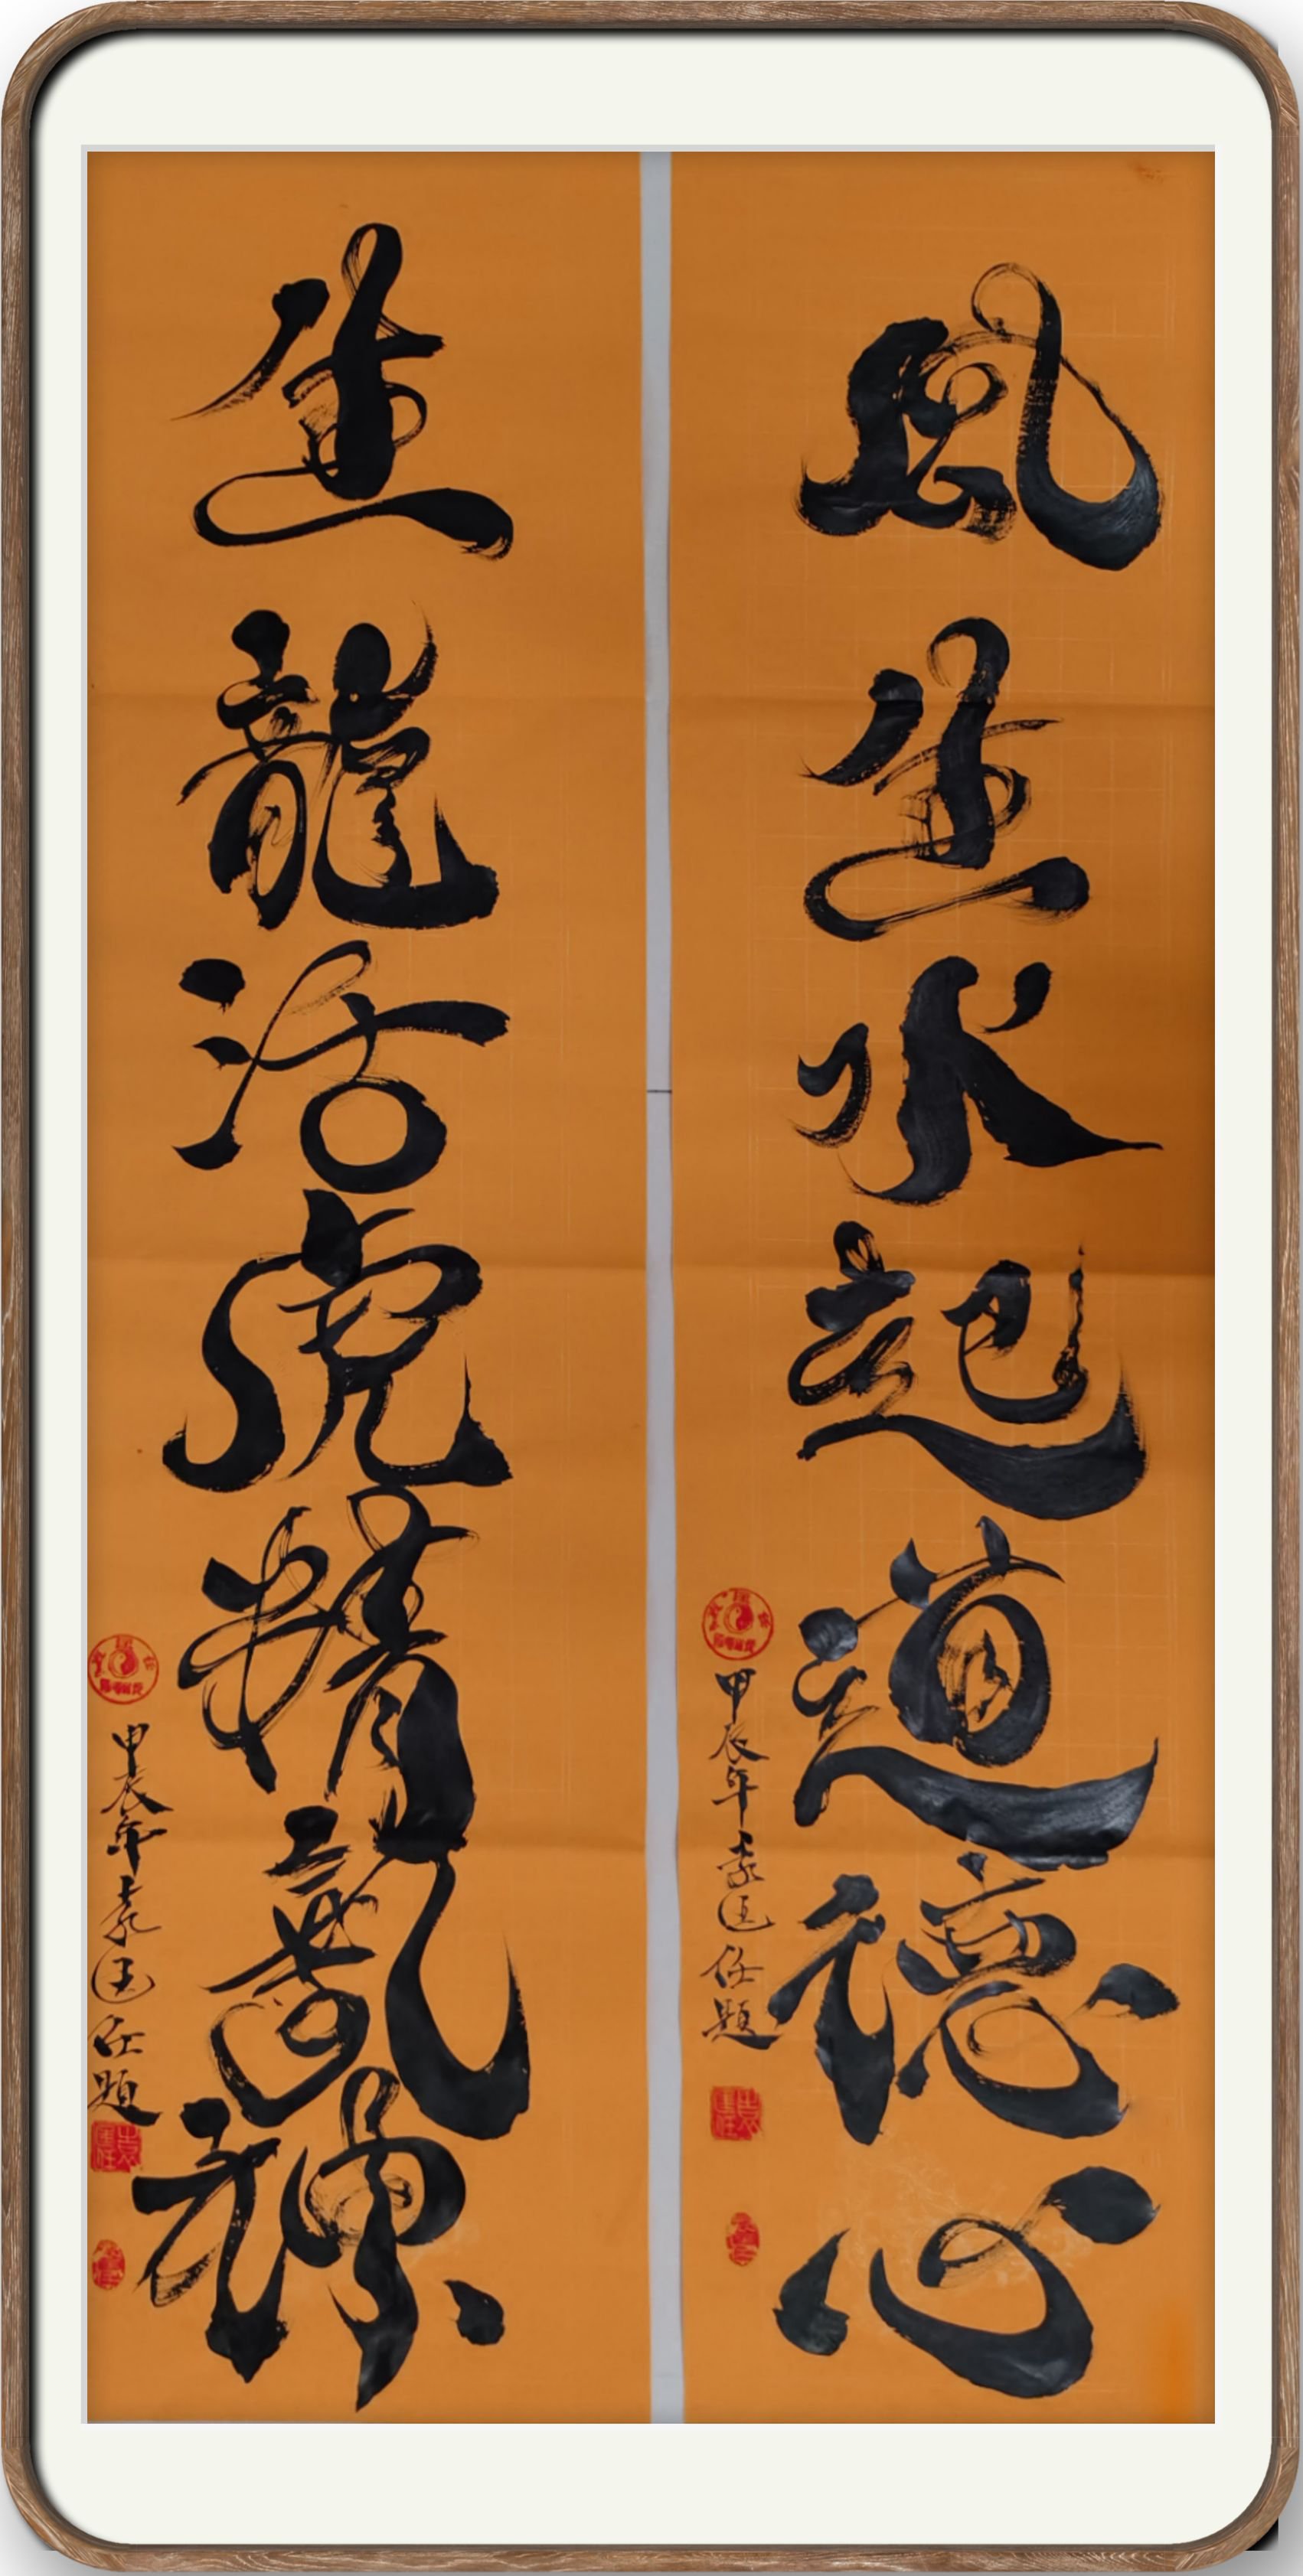 風生水起道德心
甲辰年袁囯任題
生龍活虎精氣神
甲辰年袁囯任題